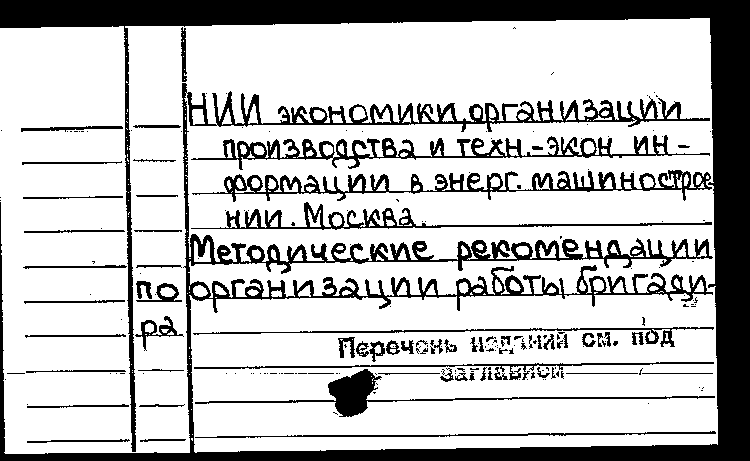 НИИ экономики, организации
производства и техн.-экон. ин-
формации в энерг. машинострое
нии. Москва.
Методические рекомендации
по организации работы бригади-
ра
Перечень изданий см. под
заглавием